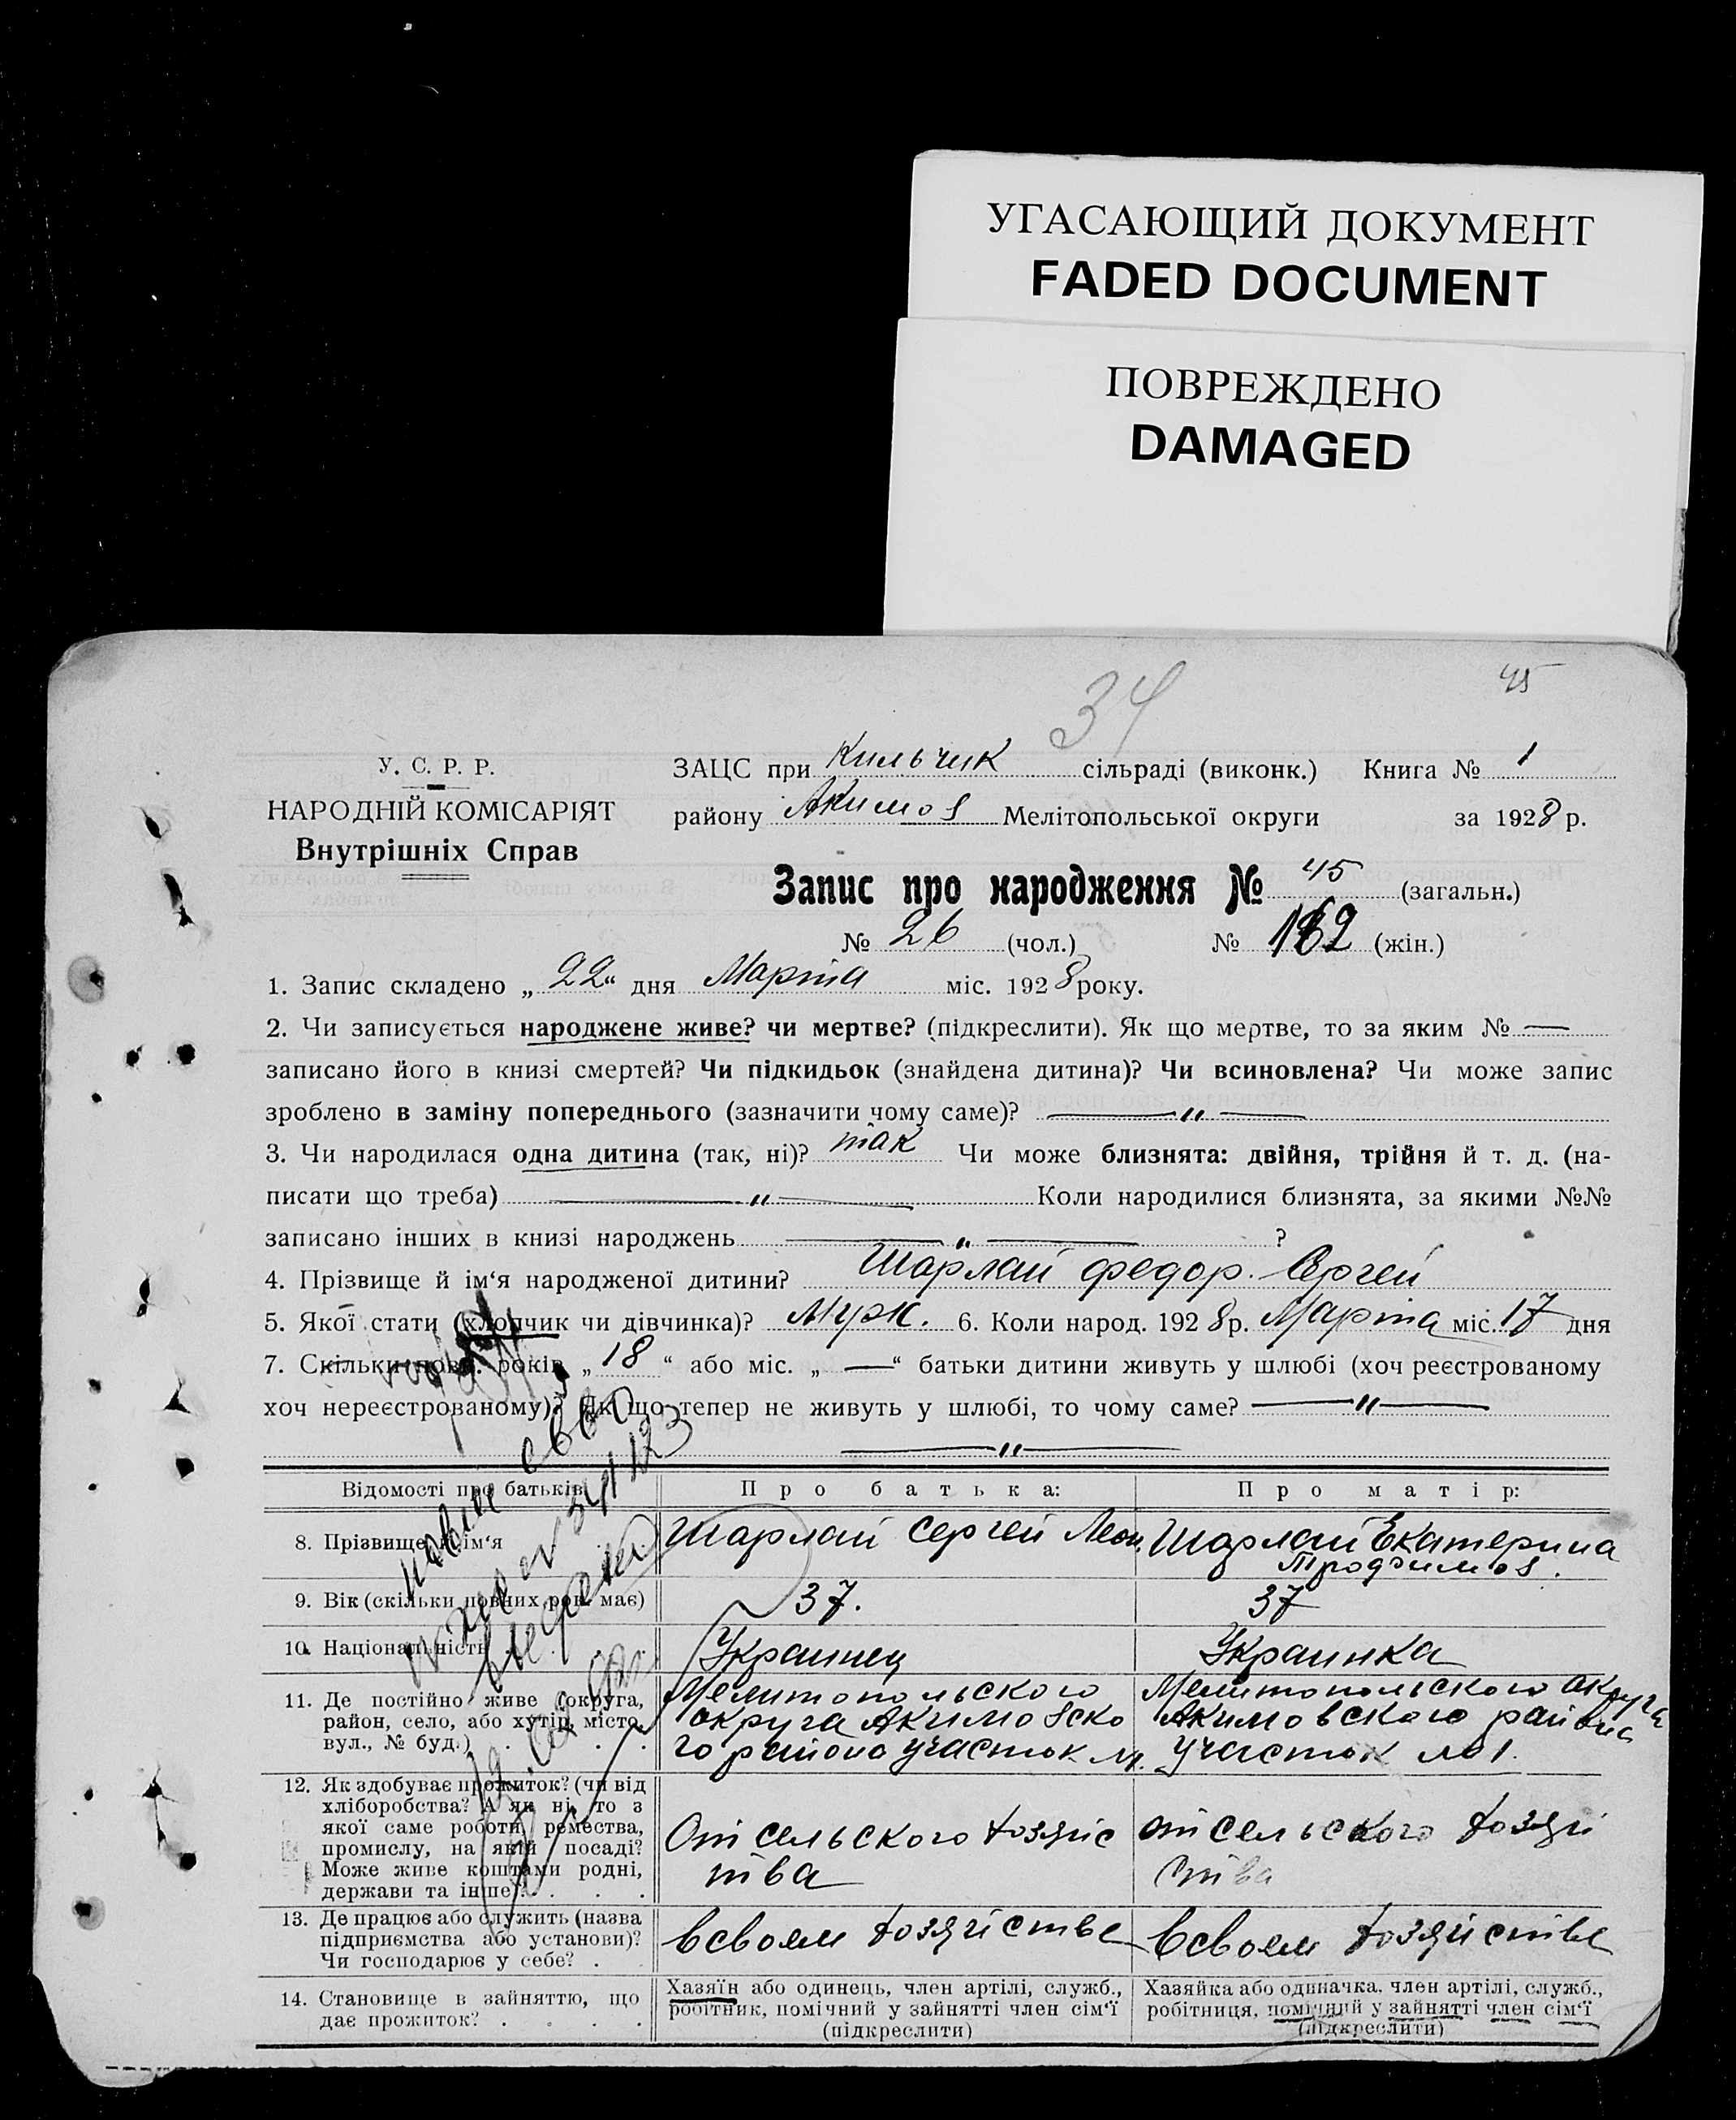 УГАСАЮЩИЙ ДОКУМЕНТ
FADED DOCUMENT
ПОВРЕЖДЕНО
DAMAGED
34
45
У. С. Р. Р.
НАРОДНІЙ КОМІСАРІЯТ
Внутрішніх Справ
ЗАЦС при Кильчик сільраді (виконк.) Книга № 1
району Акимов Мелітопольської округи за 1928 р.
Запис про народження № 45 (загальн.)
№ 26 (чол.) № (жін.)
1. Запис складено „ 22 “ дня Марта міс. 1928 року.
2. Чи записується народжене живе? чи мертве? (підкреслити). Як що мертве, то за яким № —
записано його в книзі смертей? Чи підкидьок (знайдена дитина)? Чи всиновлена? Чи може запис
зроблено в заміну попереднього (зазначити чому саме)? — „ —
3. Чи народилася одна дитина (так, ні)? так Чи може близнята: двійня, трійня й т. д. (на-
писати що треба) — „ — Коли народилися близнята, за якими №№
записано інших в книзі народжень — „ — ?
4. Прізвище й ім‘я народженої дитини? Шарлай Федор. Сергей
5. Якої стати (хлопчик чи дівчинка)? Муж. 6. Коли народ. 1928 р. Марта міс. 17 дня
7. Скільки повн. років „ 18 “ або міс. „ — “ батьки дитини живуть у шлюбі (хоч реєстрованому
хоч нереєстрованому)? Як що тепер не живуть у шлюбі, то чому саме? — „ —
— „ —
Відомості про батьків П р о б а т ь к а: П р о м а т і р:
8. Прізвище й ім‘я Шарлай Сергей Леон. Шарлай Екатерина
Трофимов.
9. Вік (скільки повних рок. має) 37. 37
10. Національність Украинец Украинка
11. Де постійно живе (округа,
район, село, або хутір, місто,
вул., № буд.)
Мелитопольского
округа Акимовско
го района участок №1.
Мелитопольского округа
Акимовского района
участок №1.
12. Як здобуває прожиток? (чи від
хліборобства? А як ні, то з
якої саме роботи, ремества,
промислу, на якій посаді?
Може живе коштами родні,
держави та інше)?
От сельского хозяйс
тва
от сельского хозяй
ства
13. Де працює або служить (назва
підприємства або установи)?
Чи господарює у себе?
в своем хозяйстве
в своем хозяйстве
14. Становище в зайняттю, що
дає прожиток?
Хазяїн або одинець, член артілі, служб.,
робітник, помічний у зайнятті член сім‘ї
(підкреслити)
Хазяйка або одиначка, член артілі, служб.,
робітниця, помічний у зайнятті член сім‘ї
(підкреслити)